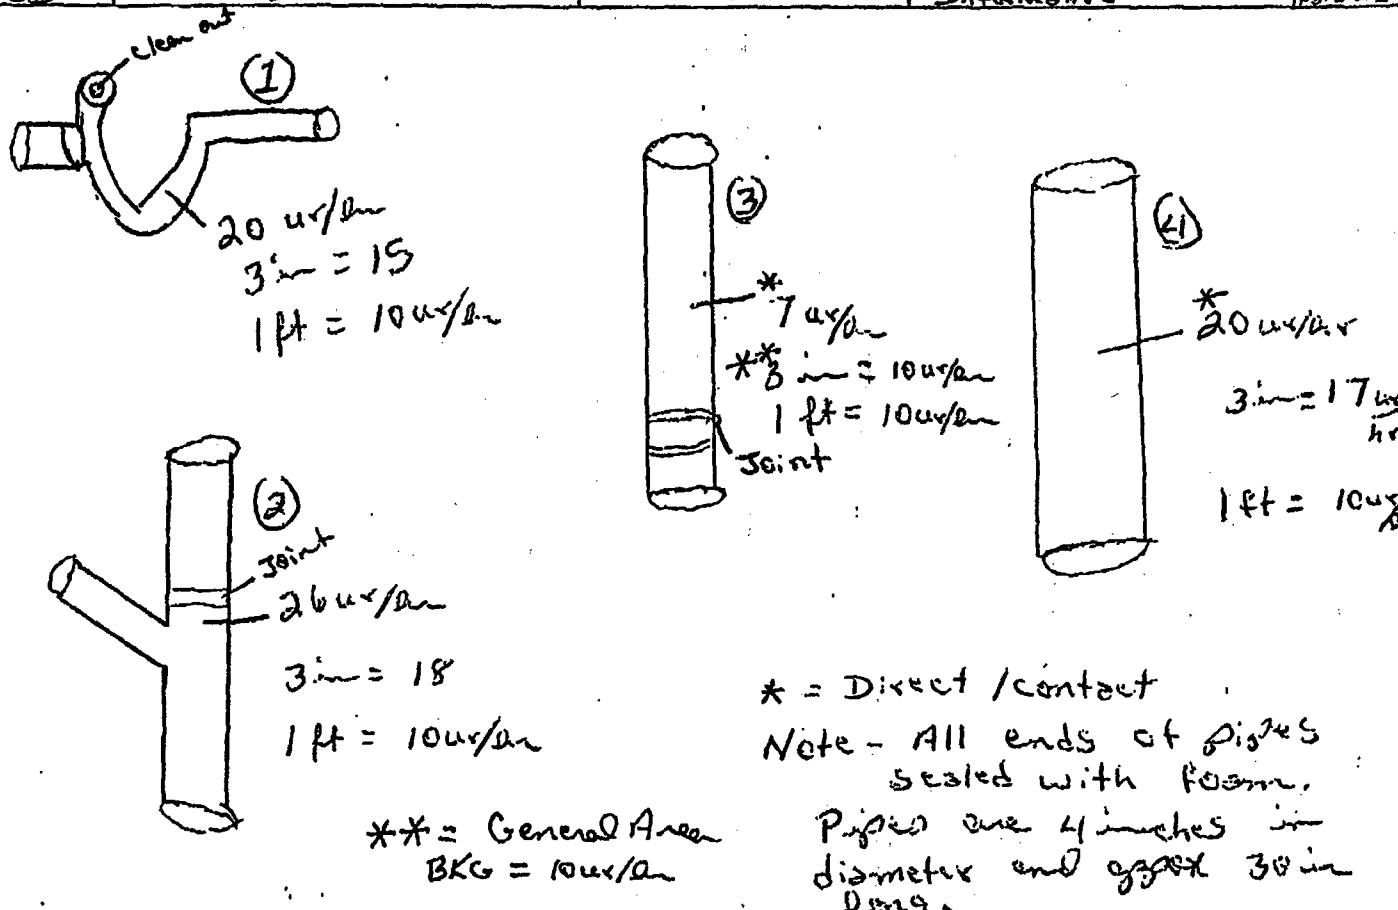 clean out
1
20 ur/hr
3 in = 15
1 ft = 10 ur/hr
2
Joint
26 ur/hr
3 in = 18
1 ft = 10 ur/hr
3
*
7 ur/hr
** 3 in = 10 ur/hr
1 ft = 10 ur/hr
Joint
4
*
20 ur/hr
3 in = 17 ur
hr
1 ft = 10 ur
* = Direct / contact
Note - All ends of pipes
sealed with foam.
Pipes are 4 inches in
diameter and approx 30 in
long.
** = General Area
BKG = 10 ur/hr